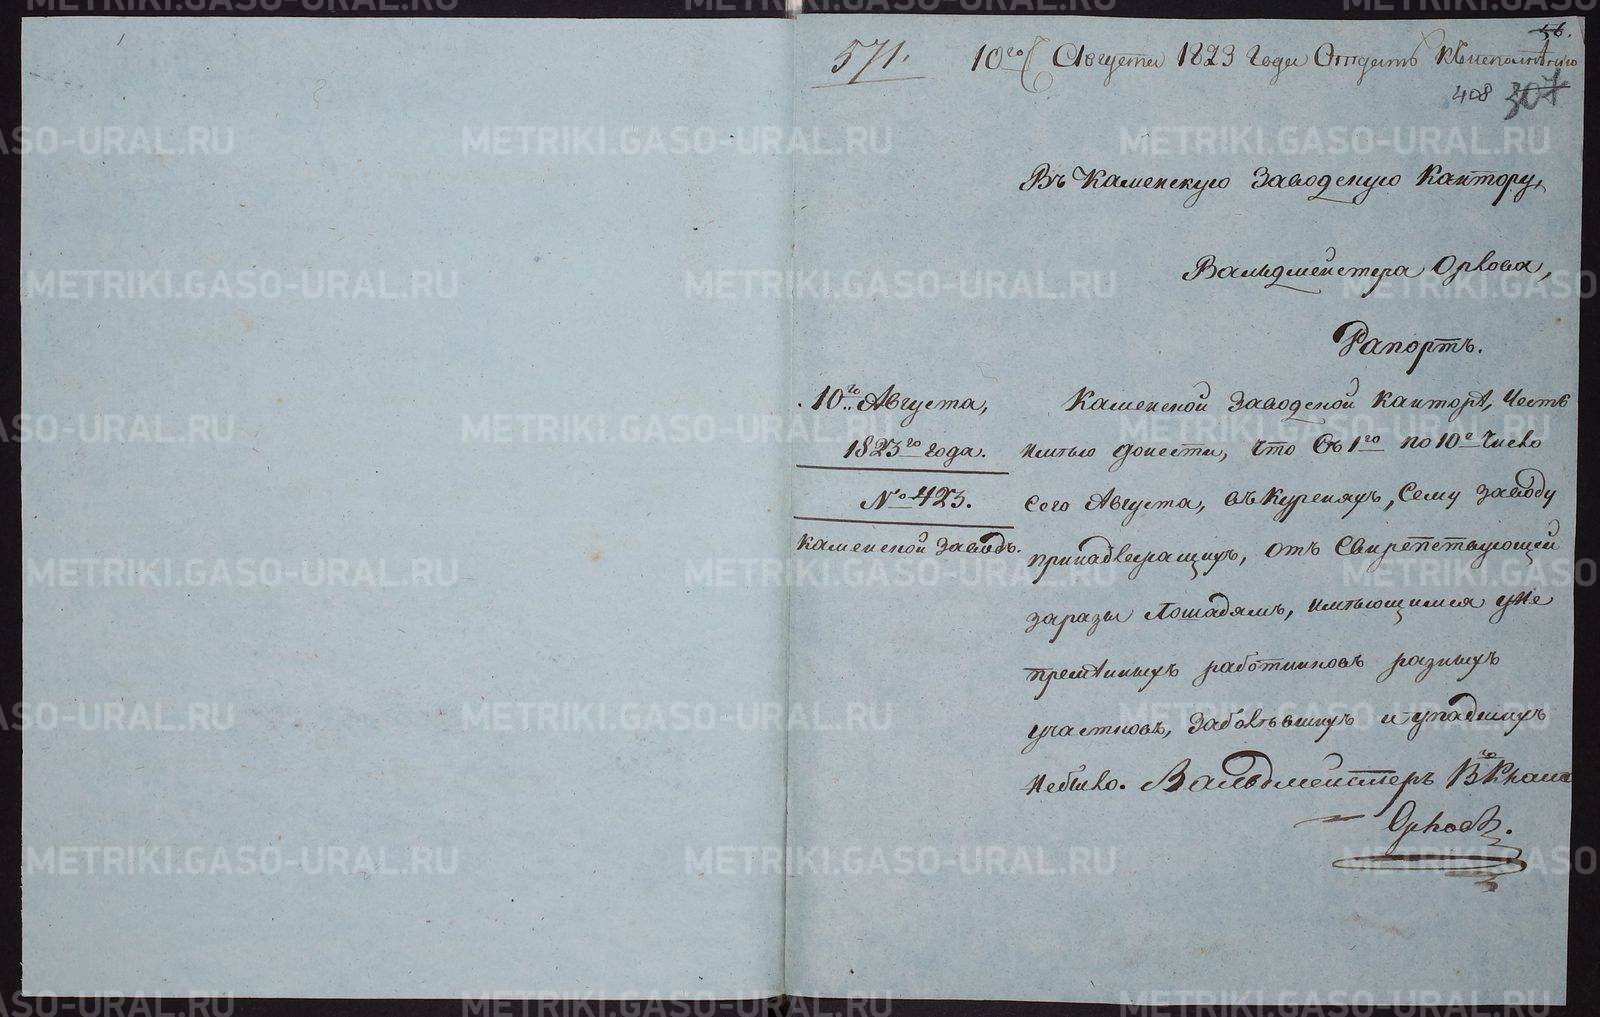 56.
571. 10го Августа 1823 Года Отдать к исполнению
408 307
Въ Каменскую Заводскую Кантору,
Вальдмейстера Орлова,
Рапортъ.
10го Августа,
1823го года.
№ 423.
Каменской заводъ.
Каменской Заводской Канторѣ, Честь
имѣю донести, что Съ 1го по 10е Число
Сего Августа, въ Куреняхъ, Сему заводу
принадлежащихъ, отъ Свирепствующей
заразы Лошадямъ, имѣющимся уже
работниковъ разныхъ
участковъ, Заболѣвшихъ и упадшихъ
небыло. Вальдмейстеръ
Орловъ.
METRIKI.GASO-URAL.RU